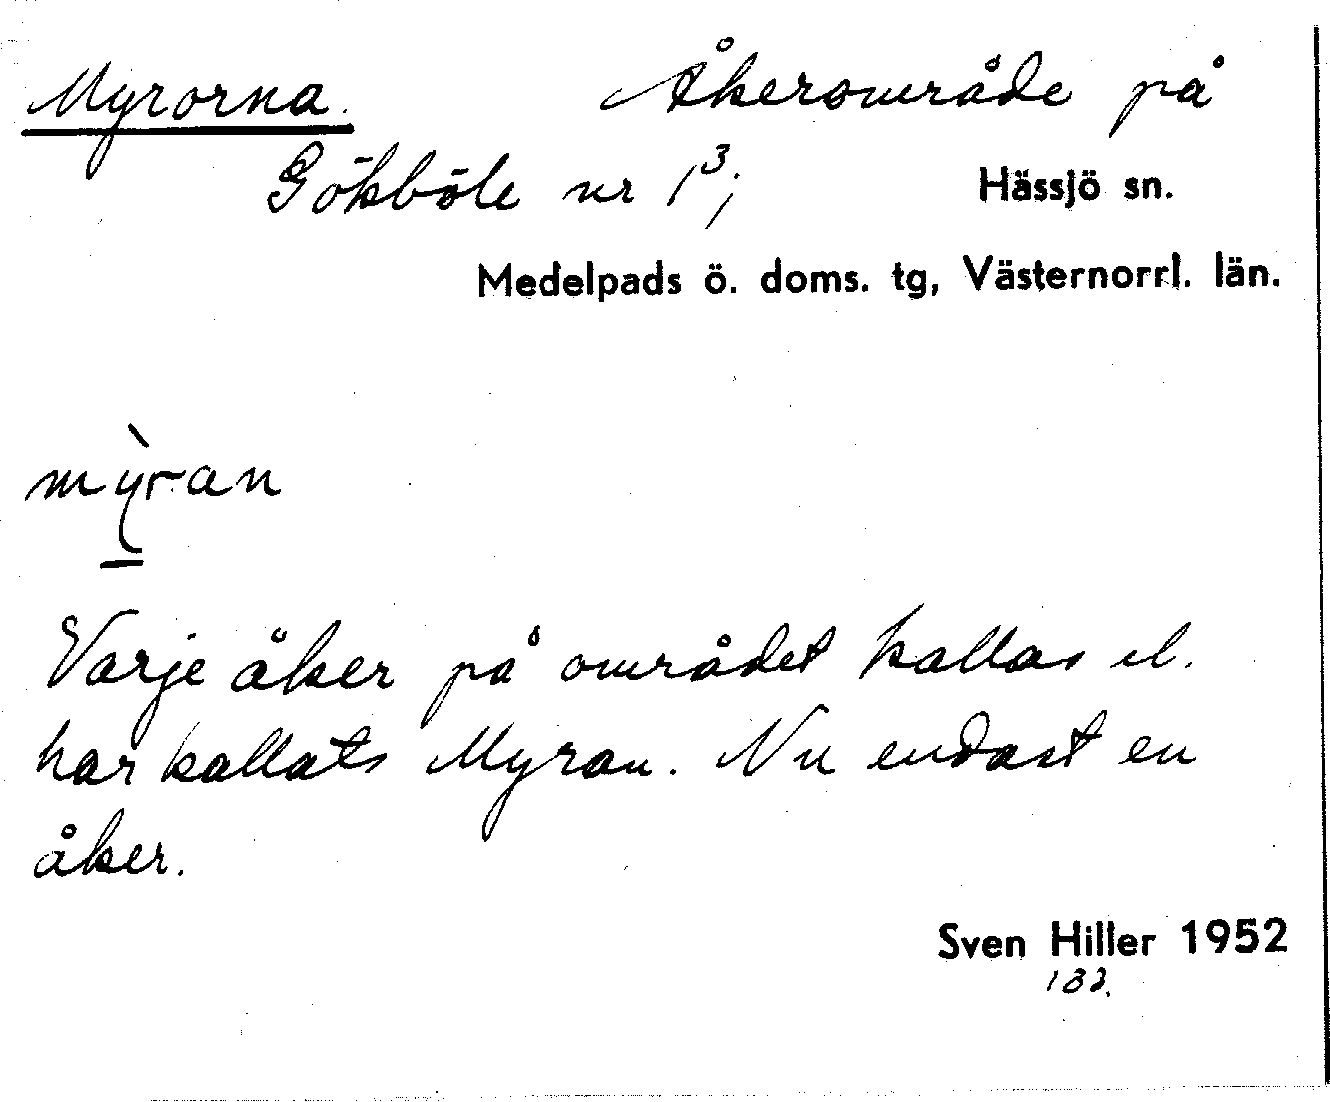 Myrorna. Åkerområde på
Gökböle nr 1³; Hässjö sn.
Medelpads ö. doms. tg, Västernorrl. län.
mỳran
Varje åker på området kallas el.
har kallats Myran. Nu endast en
åker.
Sven Hiller 1952
132.